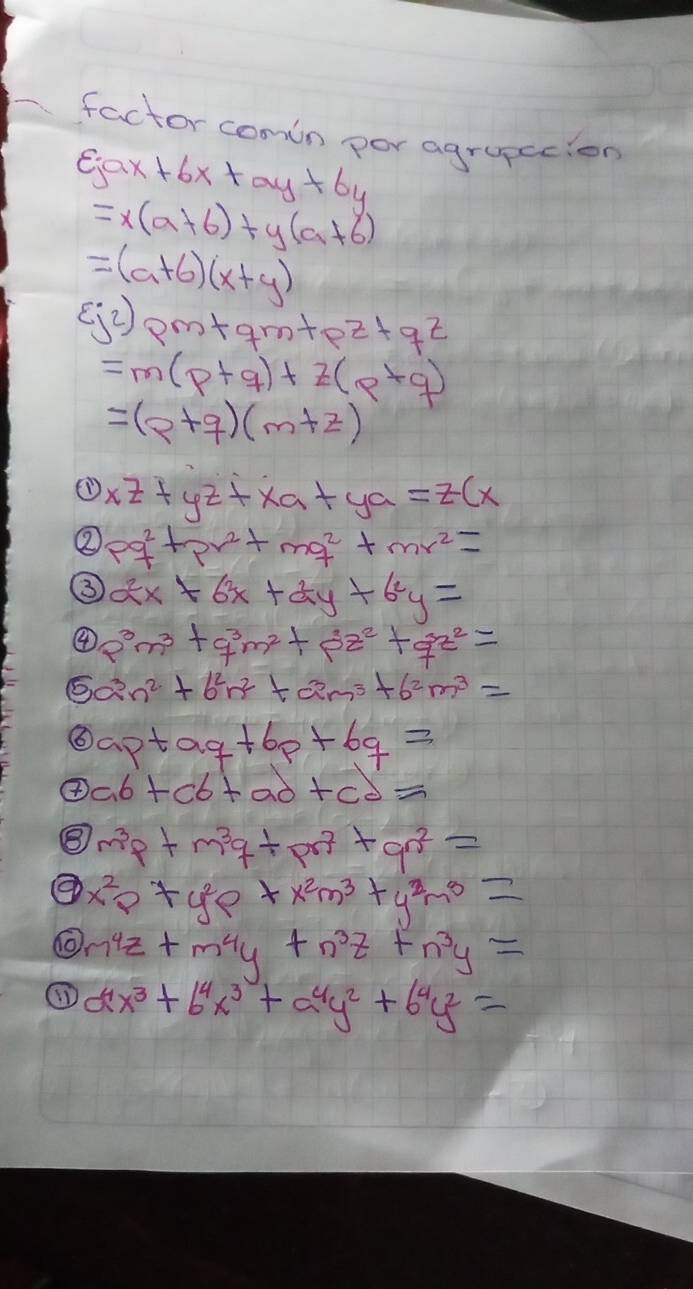 factor común por agrupación
Ej ax + bx + ay + by
= x(a+b) + y(a+b)
= (a+b)(x+y)
Ej2) pm + qm + pz + qz
= m(p+q) + z(p+q)
= (p+q)(m+z)
① xz + yz + xa + ya = z(x
② pq² + pr² + mq² + mr² =
③ a²x + b²x + a²y + b²y =
④ p³m³ + q³m² + p³z² + q³z² =
⑤ a²n² + b²n² + a²m³ + b²m³ =
⑥ ap + aq + bp + bq =
⑦ ab + cb + ad + cd =
⑧ m³p + m³q + pn² + qn² =
⑨ x²p + y²p + x²m³ + y²m³ =
⑩ m⁴z + m⁴y + n³z + n³y =
⑪ a⁴x³ + b⁴x³ + a⁴y² + b⁴y² =